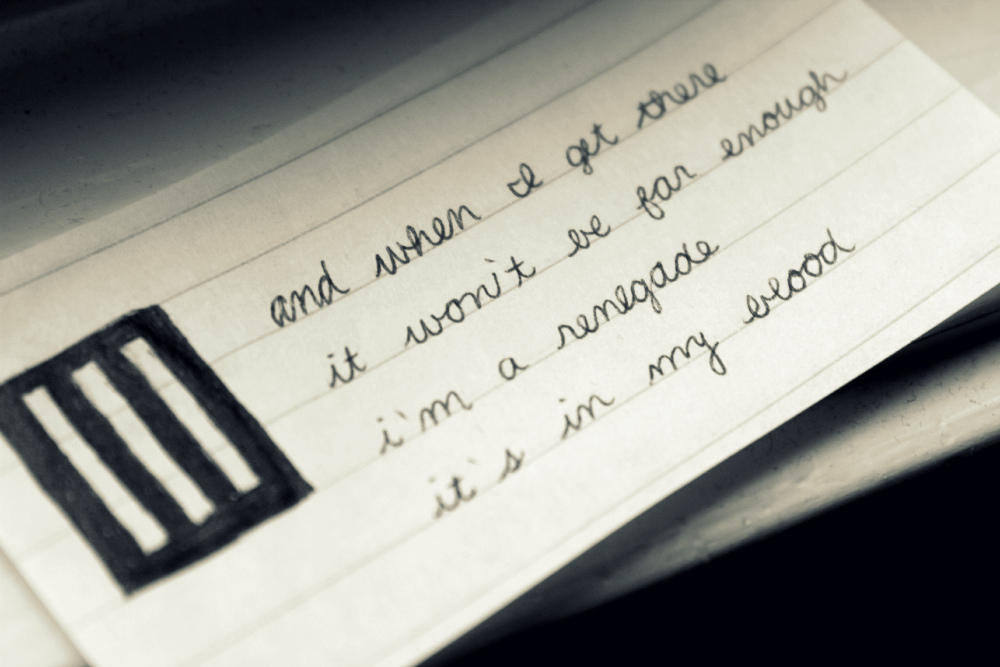 and when I get there
it won't be far enough
i'm a renegade
it's in my blood